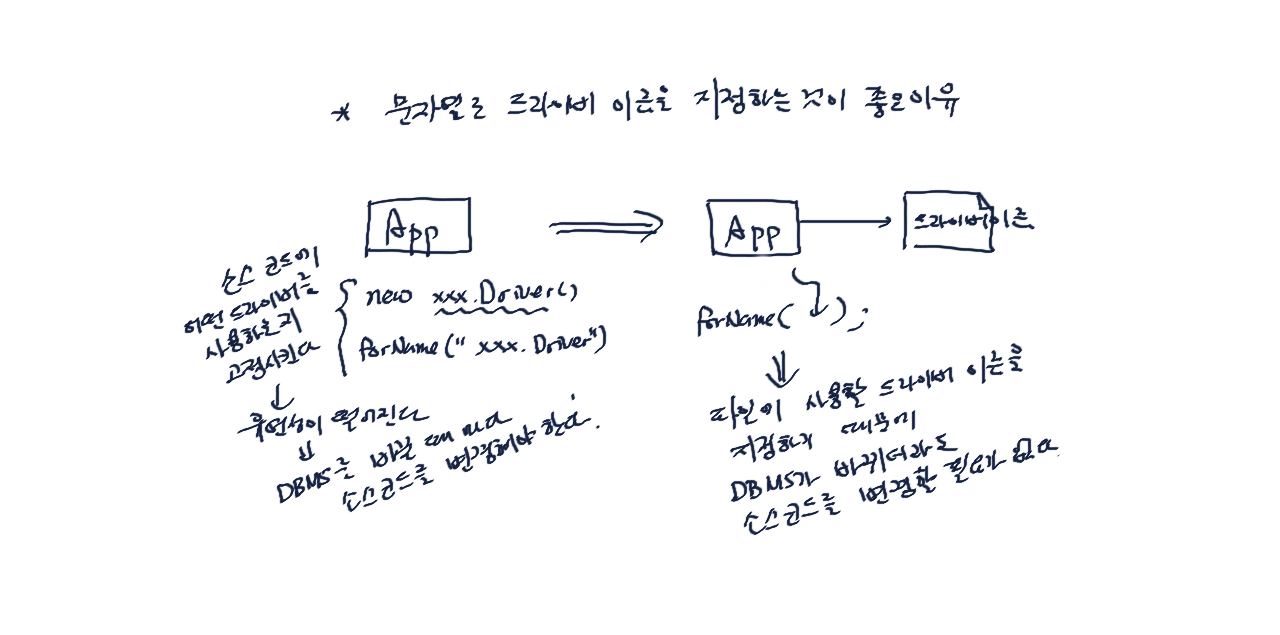 * 문자열로 드라이버 이름을 지정하는 것이 좋은 이유
App
소스 코드에
어떤 드라이버를
사용하는지
고정시킨다
new xxx.Driver()
forName("xxx.Driver")
유연성이 떨어진다
DBMS를 바꿀 때 마다
소스코드를 변경해야 한다.
App
드라이버이름
forName( );
파일에 사용할 드라이버 이름을
지정하기 때문에
DBMS가 바뀌더라도
소스코드를 변경할 필요가 없다